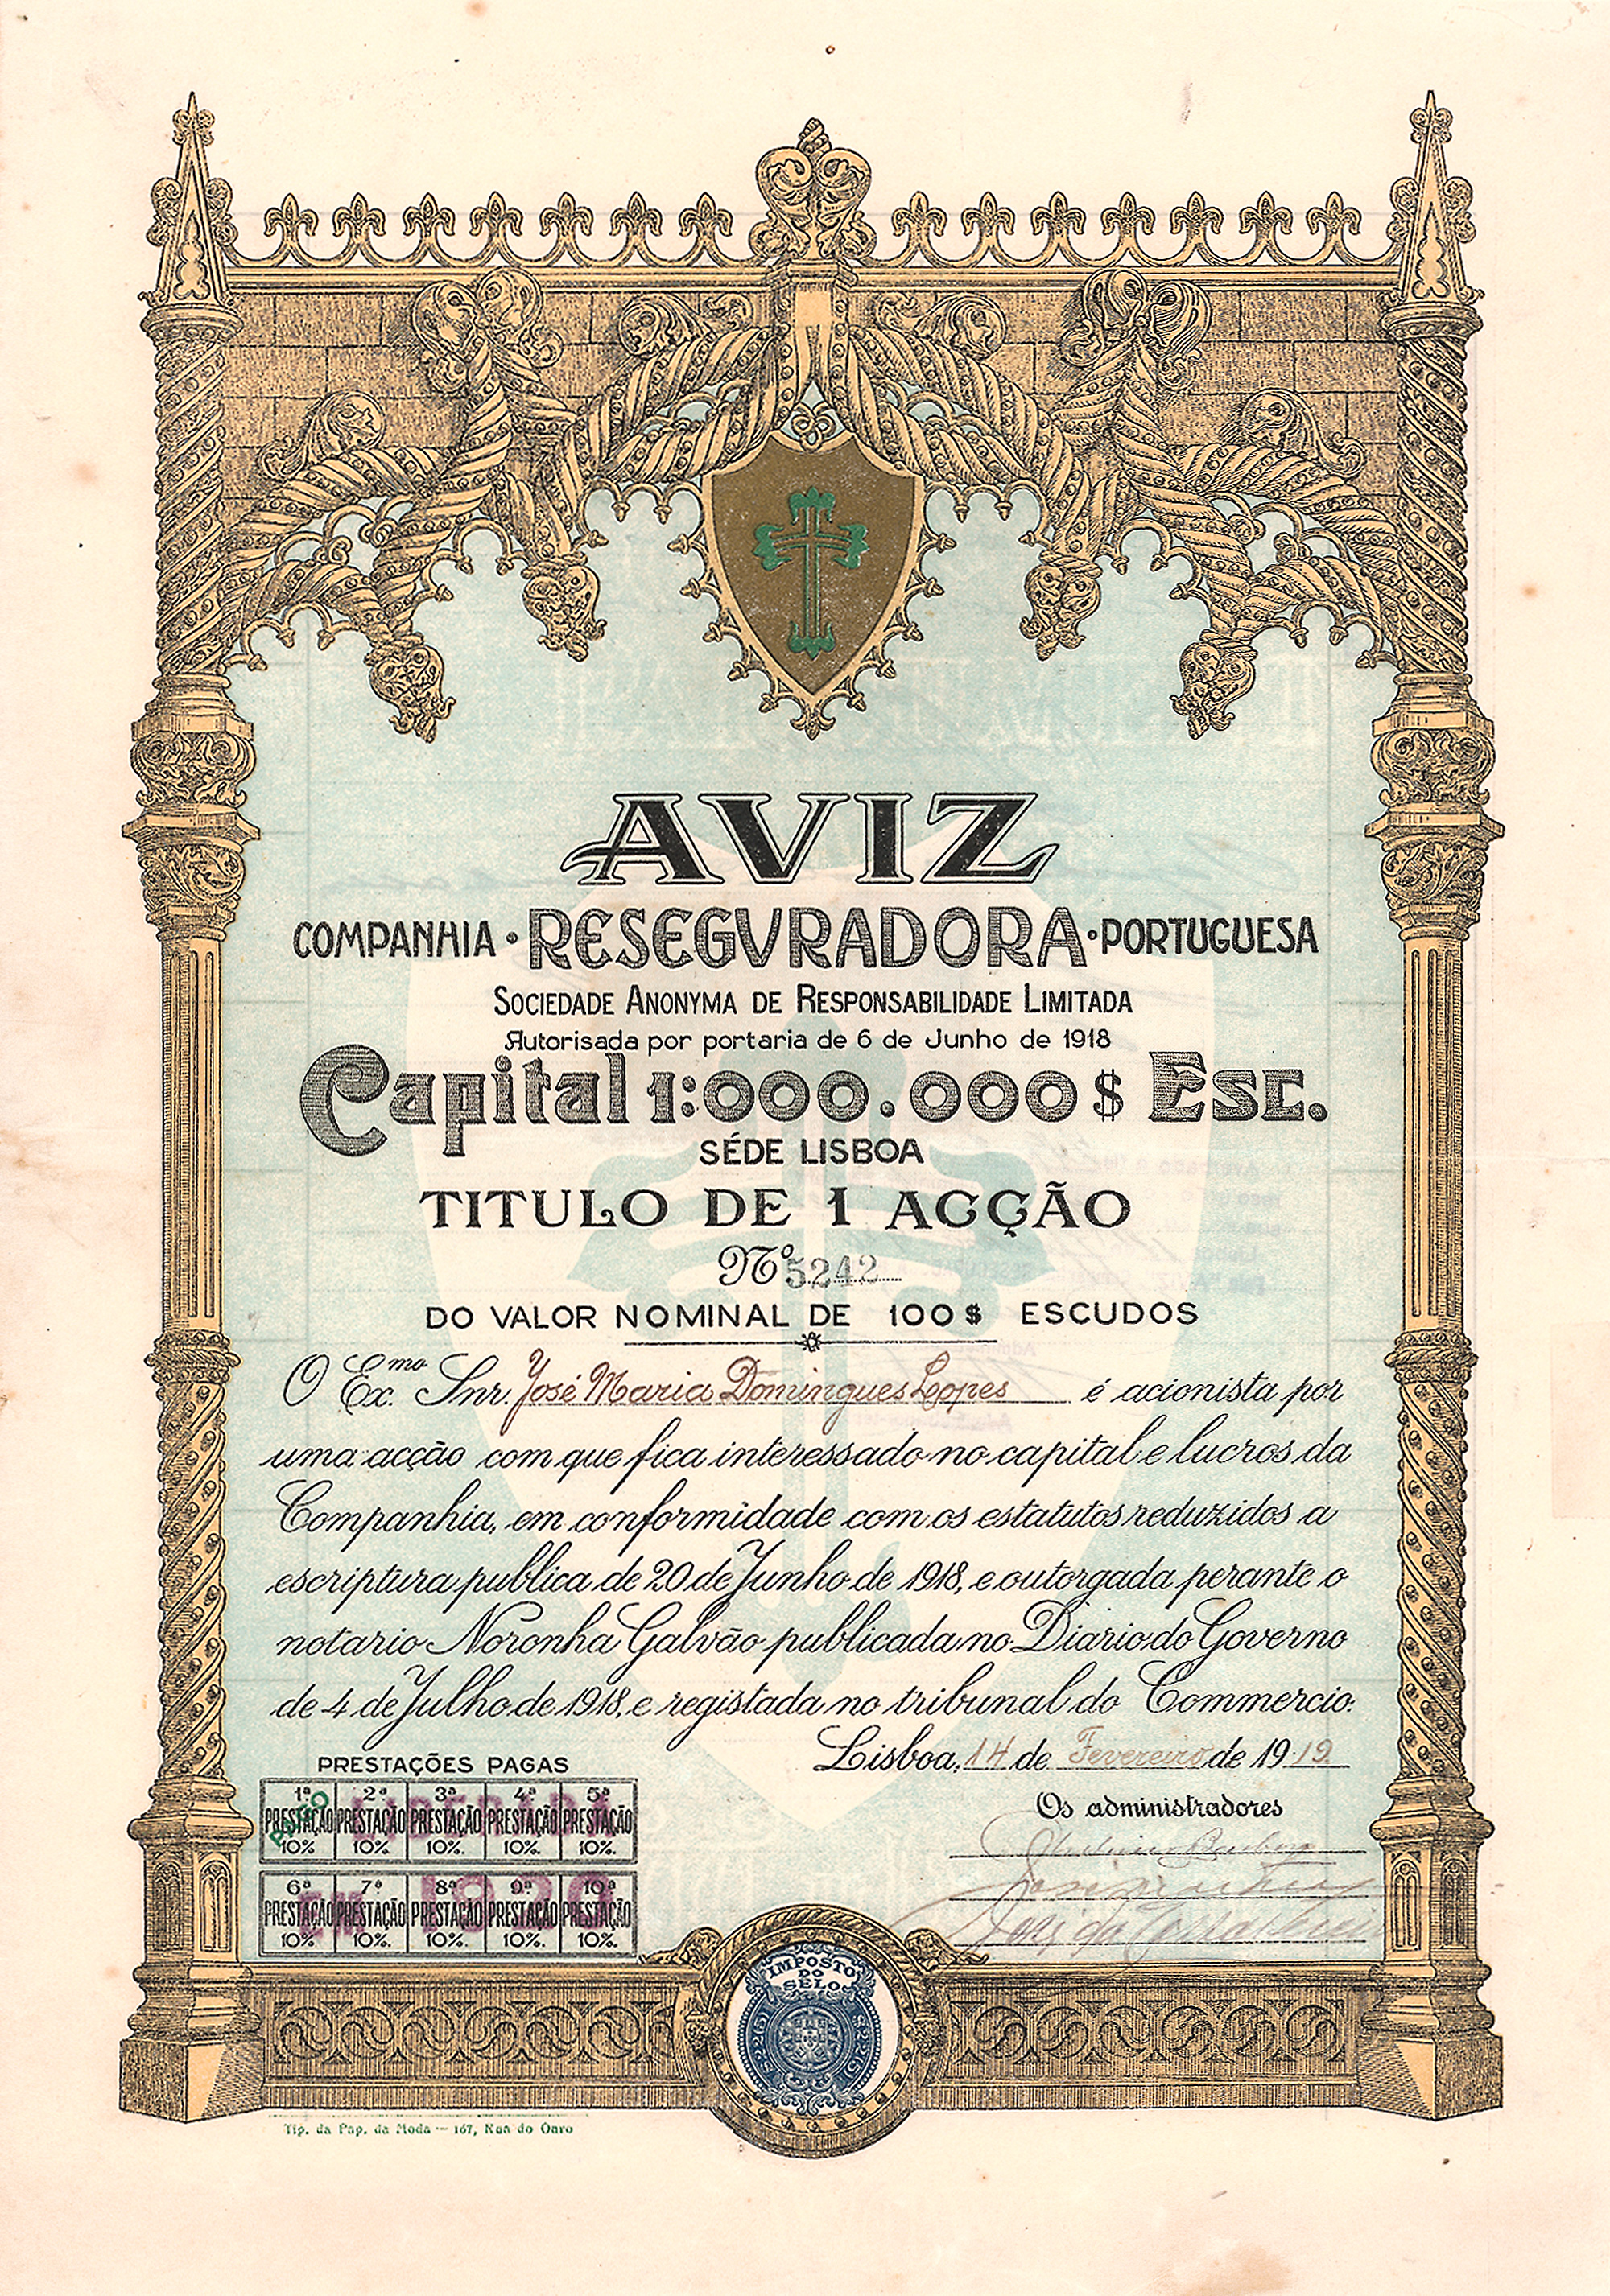 AVIZ
COMPANHIA · RESEGVRADORA · PORTUGUESA
SOCIEDADE ANONYMA DE RESPONSABILIDADE LIMITADA
Autorisada por portaria de 6 de Junho de 1918
Capital 1:000.000$ Esc.
SÉDE LISBOA
TITULO DE 1 ACÇÃO
Nº 5242
DO VALOR NOMINAL DE 100$ ESCUDOS
O Ex.mo Snr. José Maria Domingues Lopes é acionista por
uma acção com que fica interessado no capital e lucros da
Companhia, em conformidade com os estatutos reduzidos a
escriptura publica de 20 de Junho de 1918, e outorgada perante o
notario Noronha Galvão publicada no Diario do Governo
de 4 de Julho de 1918, e registada no tribunal do Commercio.
Lisboa, 14 de Fevereiro de 1919
PRESTAÇÕES PAGAS
1ª PRESTAÇÃO 10% 2ª PRESTAÇÃO 10% 3ª PRESTAÇÃO 10% 4ª PRESTAÇÃO 10% 5ª PRESTAÇÃO 10%
PAGO
LIBERADA
6ª PRESTAÇÃO 10% 7ª PRESTAÇÃO 10% 8ª PRESTAÇÃO 10% 9ª PRESTAÇÃO 10% 10ª PRESTAÇÃO 10%
EM 1920
Os administradores
IMPOSTO
DO
SELO
Tip. da Pap. da Moda — 167, Rua do Ouro